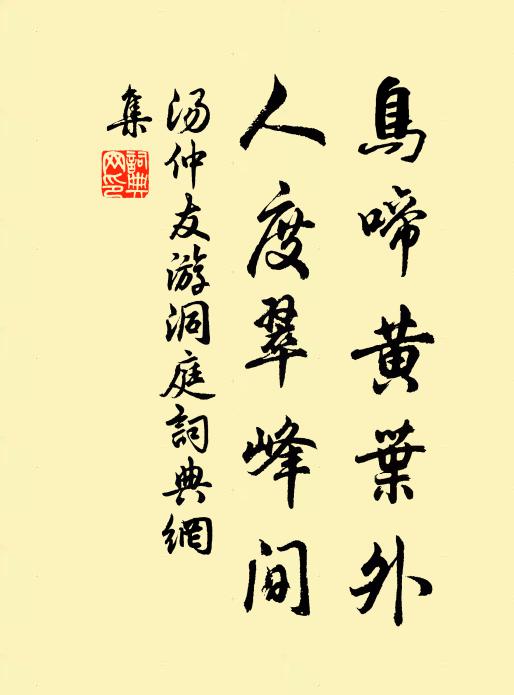 鳥啼黄葉外
人度翠峰间
汤仲友游洞庭詞典網
集
詞典
网印